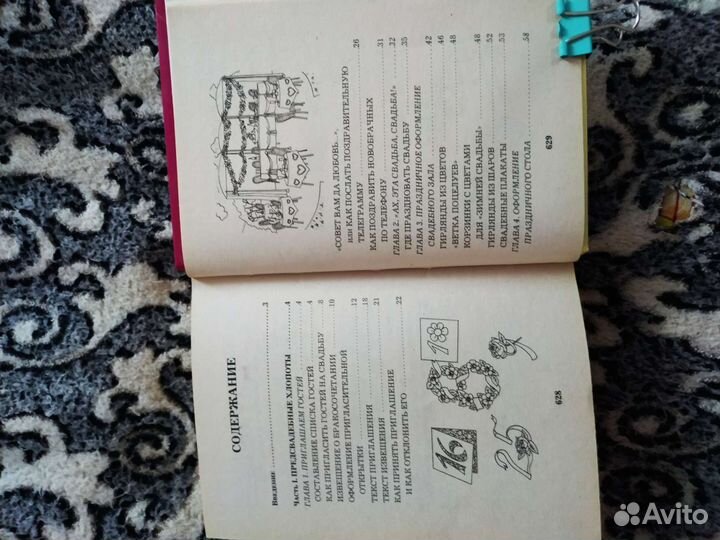 СОДЕРЖАНИЕ
Введение .3
Часть I. ПРЕДСВАДЕБНЫЕ ХЛОПОТЫ .4
ГЛАВА 1. ПРИГЛАШАЕМ ГОСТЕЙ .4
СОСТАВЛЕНИЕ СПИСКА ГОСТЕЙ .4
КАК ПРИГЛАСИТЬ ГОСТЕЙ НА СВАДЬБУ .8
ИЗВЕЩЕНИЕ О БРАКОСОЧЕТАНИИ .10
ОФОРМЛЕНИЕ ПРИГЛАСИТЕЛЬНОЙ
ОТКРЫТКИ .12
ТЕКСТ ПРИГЛАШЕНИЯ .18
ТЕКСТ ИЗВЕЩЕНИЯ .21
КАК ПРИНЯТЬ ПРИГЛАШЕНИЕ
И КАК ОТКЛОНИТЬ ЕГО .22
16
18
25
628
«СОВЕТ ВАМ ДА ЛЮБОВЬ...»,
или КАК ПОСЛАТЬ ПОЗДРАВИТЕЛЬНУЮ
ТЕЛЕГРАММУ .26
КАК ПОЗДРАВИТЬ НОВОБРАЧНЫХ
ПО ТЕЛЕФОНУ .31
ГЛАВА 2. «АХ, ЭТА СВАДЬБА, СВАДЬБА!» .32
ГДЕ ПРАЗДНОВАТЬ СВАДЬБУ .35
ГЛАВА 3. ПРАЗДНИЧНОЕ ОФОРМЛЕНИЕ
СВАДЕБНОГО ЗАЛА .42
ГИРЛЯНДЫ ИЗ ЦВЕТОВ .46
«ВЕТКА ПОЦЕЛУЕВ» .48
КОРЗИНКИ С ЦВЕТАМИ
ДЛЯ «ЗИМНЕЙ СВАДЬБЫ» .48
ГИРЛЯНДЫ ИЗ ШАРОВ .52
СВАДЕБНЫЕ ПЛАКАТЫ .53
ГЛАВА 4. ОФОРМЛЕНИЕ
ПРАЗДНИЧНОГО СТОЛА .58
629
Avito